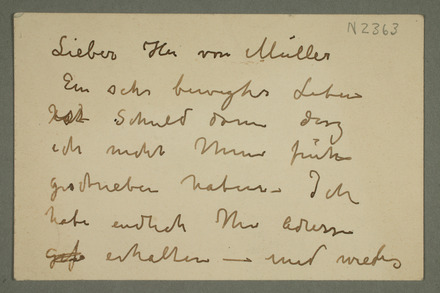 N2363
Lieber Herr von Müller
Ein sehr bewegtes Leben
ist Schuld daran dass
ich nicht Ihnen früher
geschrieben habe. Ich
habe endlich Ihre Adresse
erhalten – und wieder